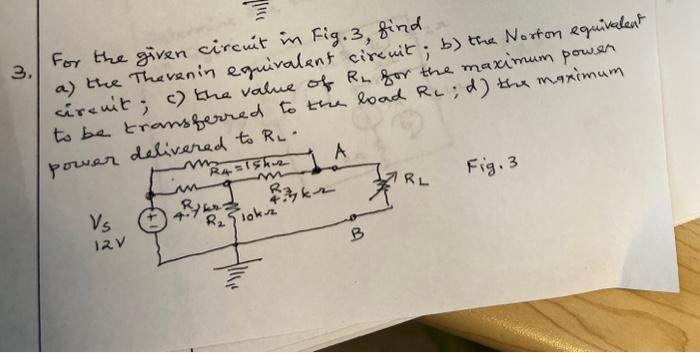 3. For the given circuit in Fig. 3, find
a) the Thevenin equivalent circuit; b) the Norton equivalent
circuit; c) the value of RL for the maximum power
to be transferred to the load RL; d) the maximum
power delivered to RL.
R4=15kΩ
A
R1
4.7kΩ
R3
4.7kΩ
RL
Fig. 3
R2
10kΩ
Vs
12V
B